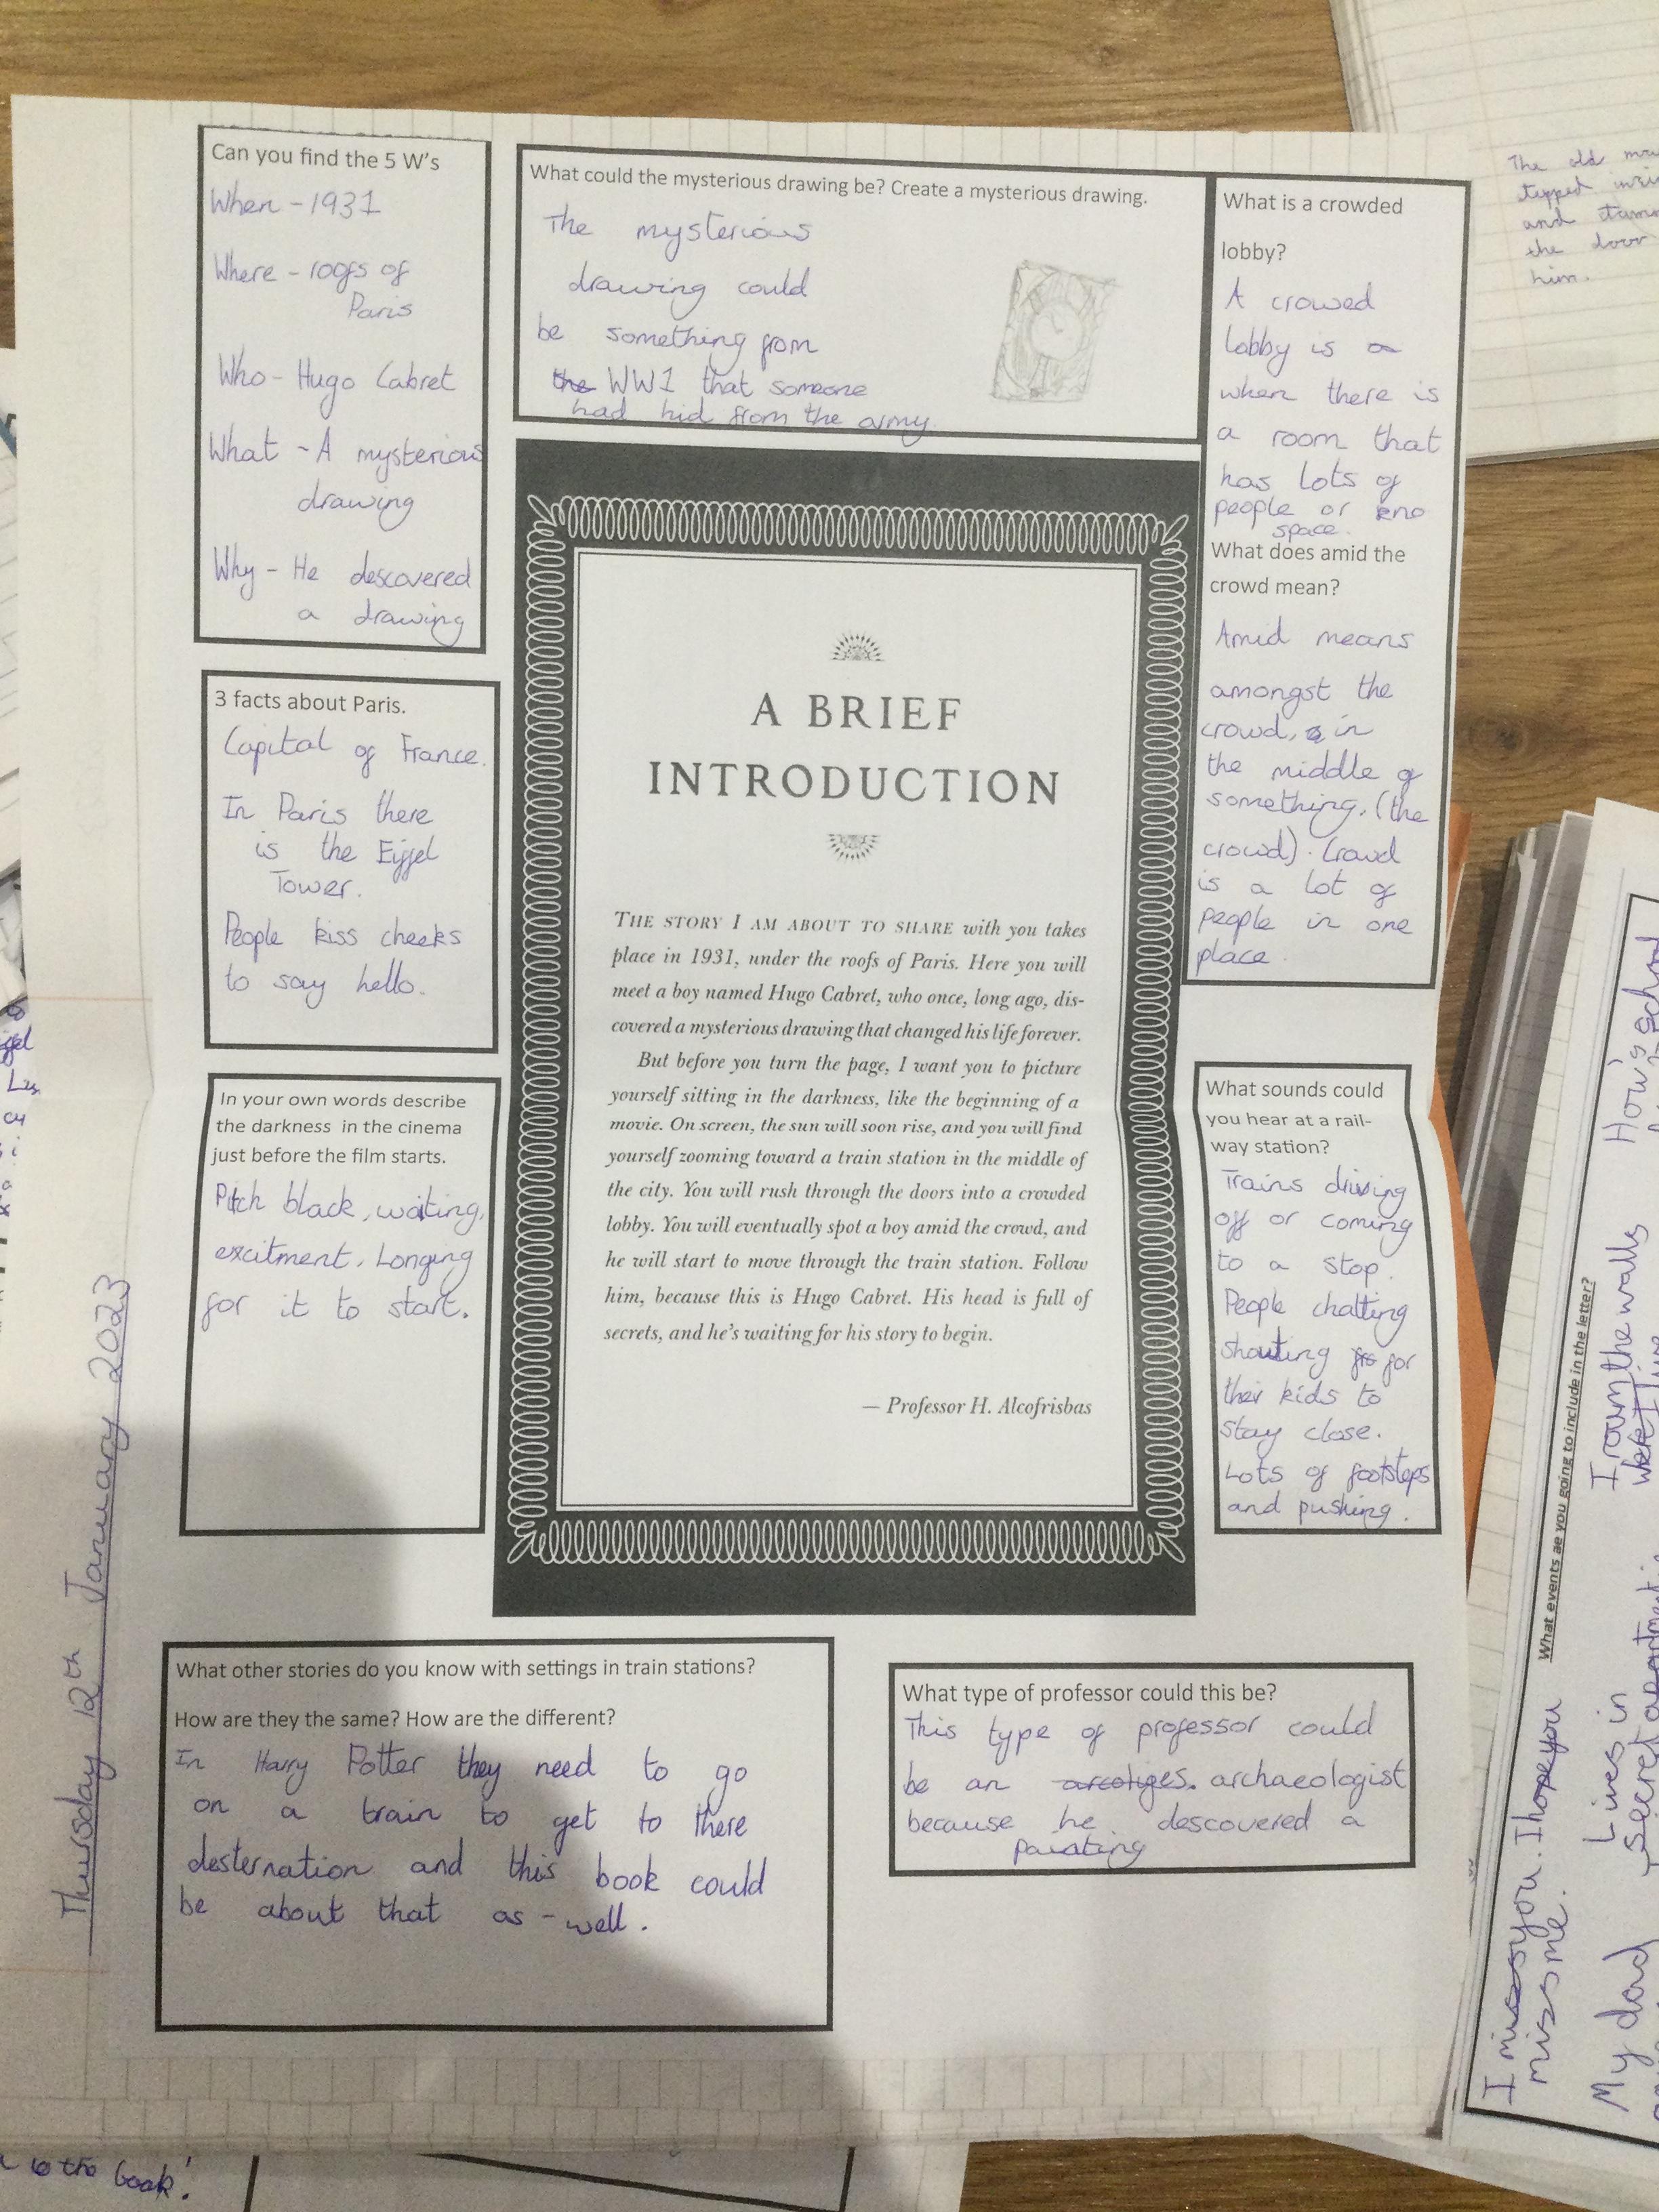 Thursday 12th January 2023
Can you find the 5 W's
When - 1931
Where - roofs of
Paris
Who - Hugo Cabret
What - A mysterious
drawing
Why - He descovered
a drawing
3 facts about Paris.
Capital of France.
In Paris there
is the Eiffel
Tower.
People kiss cheeks
to say hello.
In your own words describe
the darkness in the cinema
just before the film starts.
Pitch black, waiting,
excitment. Longing
for it to start.
What could the mysterious drawing be? Create a mysterious drawing.
The mysterious
drawing could
be something from
the WW1 that someone
had hid from the army.
What is a crowded
lobby?
A crowed
lobby is a
when there is
a room that
has lots of
people or no
space.
What does amid the
crowd mean?
Amid means
amongst the
crowd, in
the middle of
something. (the
crowd). Crowd
is a lot of
people in one
place.
A BRIEF
INTRODUCTION
THE STORY I AM ABOUT TO SHARE with you takes
place in 1931, under the roofs of Paris. Here you will
meet a boy named Hugo Cabret, who once, long ago, dis-
covered a mysterious drawing that changed his life forever.
But before you turn the page, I want you to picture
yourself sitting in the darkness, like the beginning of a
movie. On screen, the sun will soon rise, and you will find
yourself zooming toward a train station in the middle of
the city. You will rush through the doors into a crowded
lobby. You will eventually spot a boy amid the crowd, and
he will start to move through the train station. Follow
him, because this is Hugo Cabret. His head is full of
secrets, and he's waiting for his story to begin.
— Professor H. Alcofrisbas
What sounds could
you hear at a rail-
way station?
Trains driving
off or coming
to a stop.
People chatting
shouting for
their kids to
stay close.
Lots of footsteps
and pushing.
What other stories do you know with settings in train stations?
How are they the same? How are the different?
In Harry Potter they need to go
on a train to get to there
desternation and this book could
be about that as-well.
What type of professor could this be?
This type of professor could
be an arcoliges. archaeologist
because he descovered a
painting
The old
and
the door
him.
What events ae you going to include in the letter?
How's school
I roam the walls
where I live
Lives in
secret apartment
I miss you. I hope you
miss me.
My dad
to the book!